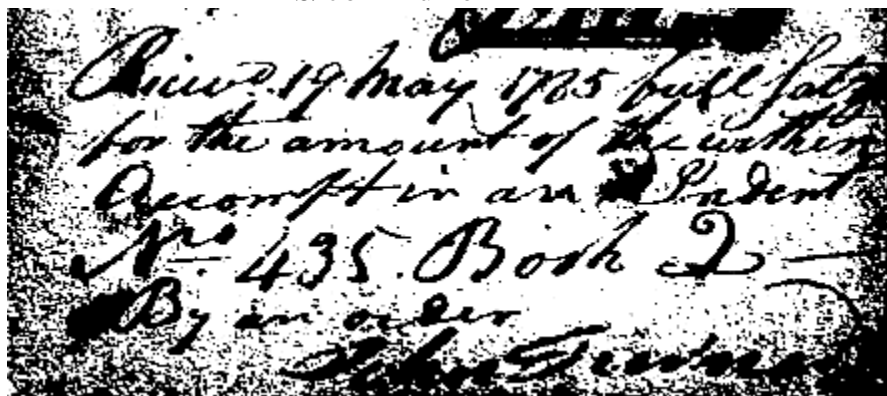 Receivd. 19 May 1785 full Satz
for the amount of the within
Accompt in an Indent
No. 435. Book 2
By an order
John